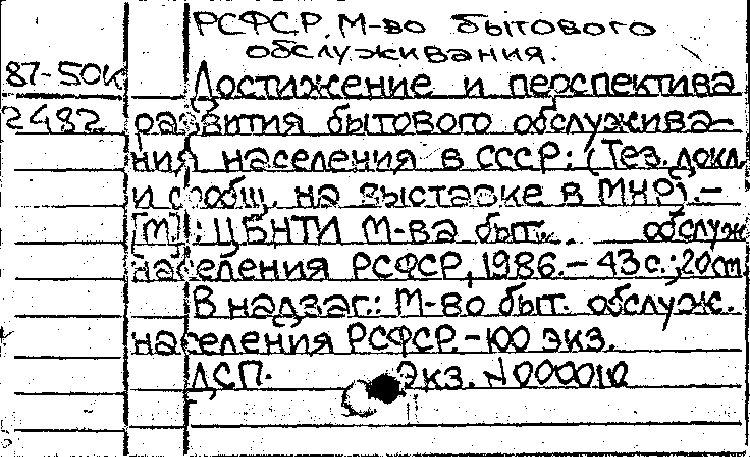 РСФСР. М-во бытового
обслуживания.
87-50к Достижение и перспектива
2482 развития бытового обслужива-
ния населения в СССР: (Тез. докл.
и сообщ. на выставке в МНР).-
[М]: ЦБНТИ М-ва быт. обслуж
населения РСФСР, 1986.- 43 с.; 20 см
В надзаг.: М-во быт. обслуж.
населения РСФСР.- 100 экз.
ДСП. Экз. N 000010